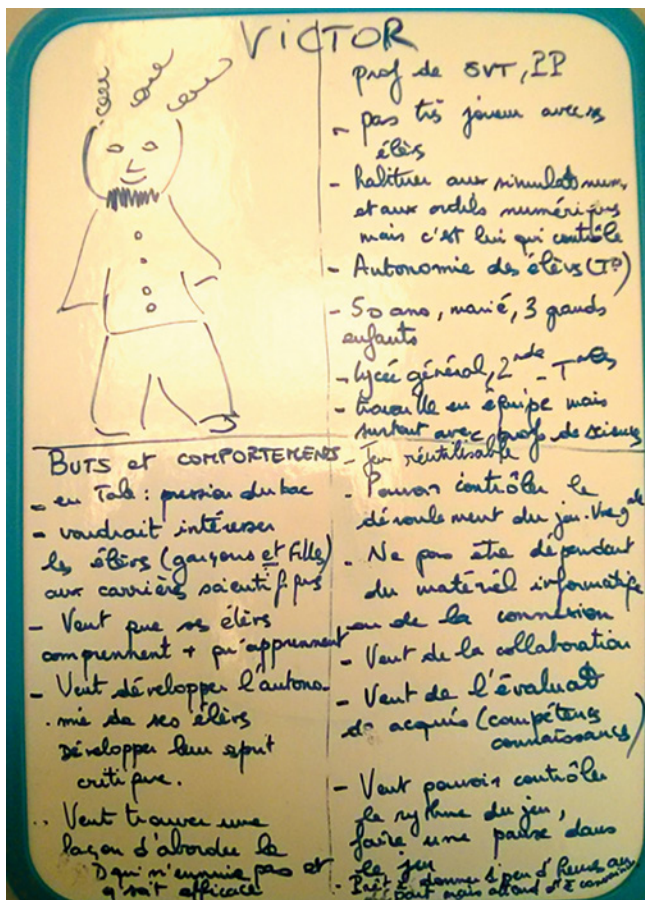 VICTOR
prof de SVT, PP
- pas très joueur avec ses
élèves
- habituer aux simulat° num.
et aux outils numériques
mais c'est lui qui contrôle
- Autonomie des élèves (TP)
- 50 ans, marié, 3 grands
enfants
- lycée général, 2nde - Tales
- travaille en équipe mais
surtout avec profs de sciences
BUTS et COMPORTEMENTS
- en Tale : pression du bac
- voudrait intéresser
les élèves (garçons et filles)
aux carrières scientifiques
- Veut que ses élèves
comprennent + qu'apprennent
- Veut développer l'autono
.mie de ses élèves
Développer leur esprit
critique.
.. Veut trouver une
façon d'aborder la
D qui n'ennuie pas et
q soit efficace
- Jeu réutilisable
- Pouvoir contrôler le
déroulement du jeu. Vue gale
- Ne pas être dépendant
du matériel informatique
ou de la connexion
- Veut de la collaboration
- Veut de l'évaluat°
d' acquis (compétences
connaissances)
- Veut pouvoir contrôler
le rythme du jeu,
faire une pause dans
le jeu
- Prêt à donner 1 peu d'heures au
mais attend d'ê